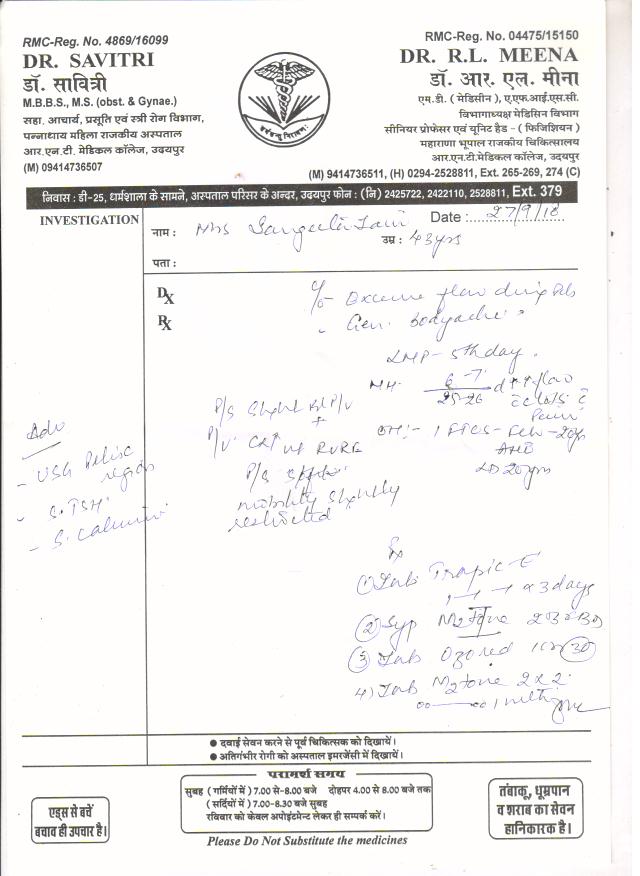 RMC-Reg. No. 4869/16099
DR. SAVITRI
डॉ. सावित्री
M.B.B.S., M.S. (obst. & Gynae.)
सहा. आचार्य, प्रसूति एवं स्त्री रोग विभाग,
पन्नाधाय महिला राजकीय अस्पताल
आर.एन.टी. मेडिकल कॉलेज, उदयपुर
(M) 09414736507
RMC-Reg. No. 04475/15150
DR. R.L. MEENA
डॉ. आर. एल. मीना
एम.डी. ( मेडिसीन ), ए.एफ.आई.एस.सी.
विभागाध्यक्ष मेडिसिन विभाग
सीनियर प्रोफेसर एवं यूनिट हैड - ( फिजिशियन )
महाराणा भूपाल राजकीय चिकित्सालय
आर.एन.टी.मेडिकल कॉलेज, उदयपुर
(M) 9414736511, (H) 0294-2528811, Ext. 265-269, 274 (C)
निवास : डी-25, धर्मशाला के सामने, अस्पताल परिसर के अन्दर, उदयपुर फोन : (नि) 2425722, 2422110, 2528811, Ext. 379
INVESTIGATION
Date : 27/9/18
नाम : Mrs Sangeeta
उम्र : 43yrs
पता :
Dx
Rx
c/o Excessive flow during
Gen. bodyache
LMP - 5th day.
MH- 6-7 flow
25-26 c clots c
Pain
P/S Slight P/V
+
P/V RVRE
OH:- 1 FTCS - 20yrs
LD 20yrs
mobility slightly
restricted
Adv
- USG Pelvic
region
- S. TSH
- S. Calcium
Rx
1) Tab Trapic-E
x 3 days
2) Syp M2tone
3) Tab 30
4) Tab M2tone 2x2
● दवाई सेवन करने से पूर्व चिकित्सक को दिखायें।
● अतिगंभीर रोगी को अस्पताल इमरजेंसी में दिखायें।
एड्स से बचें
बचाव ही उपचार है।
परामर्श समय
सुबह ( गर्मियों में ) 7.00 से-8.00 बजे दोहपर 4.00 से 8.00 बजे तक
( सर्दियों में ) 7.00-8.30 बजे सुबह
रविवार को केवल अपोइंटमेन्ट लेकर ही सम्पर्क करें।
तंबाकू, धूम्रपान
व शराब का सेवन
हानिकारक है।
Please Do Not Substitute the medicines